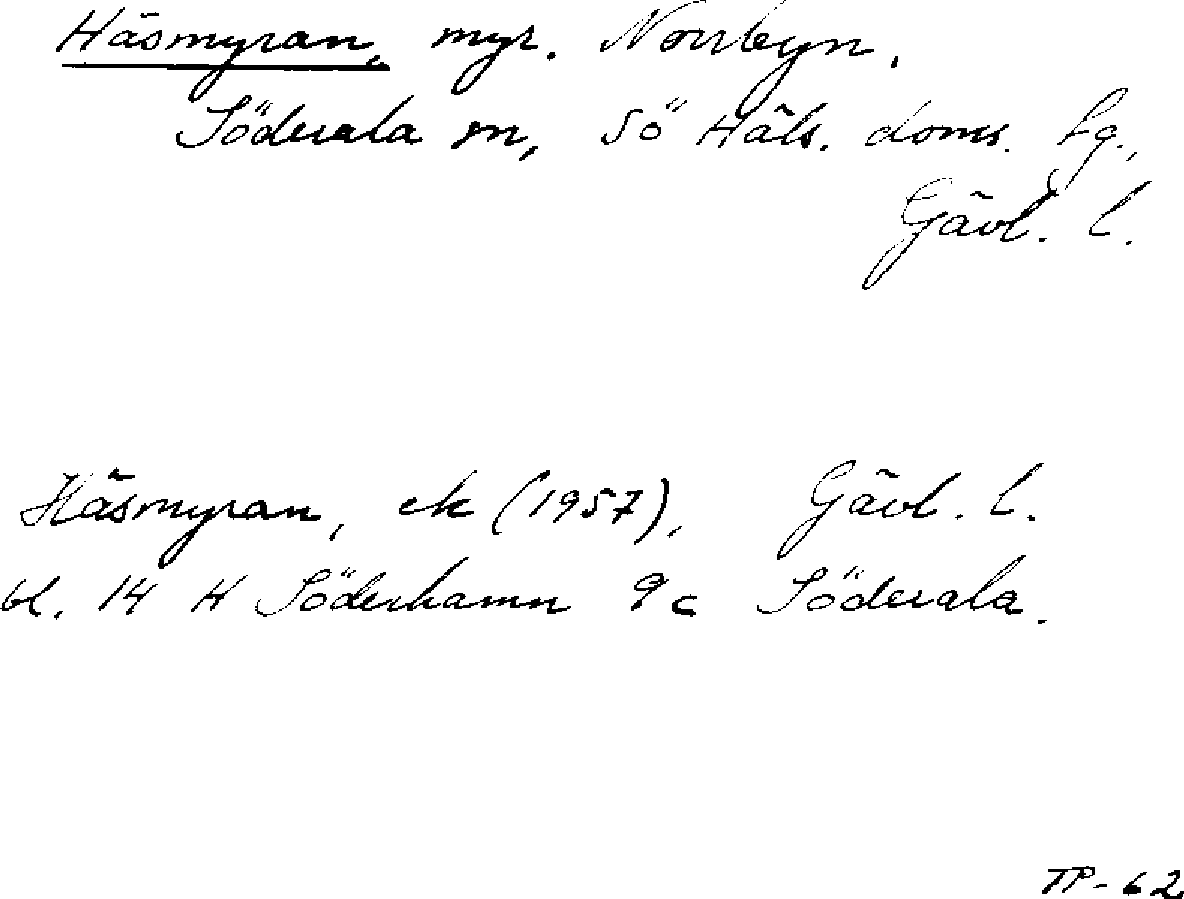 Häsmyran, myr. Norrbyn.
Söderala sn, Sö Häls. doms. lg.,
Gävl. l.
Häsmyran, ek (1957), Gävl. l.
bl. 14 H Söderhamn 9c Söderala.
TP-62